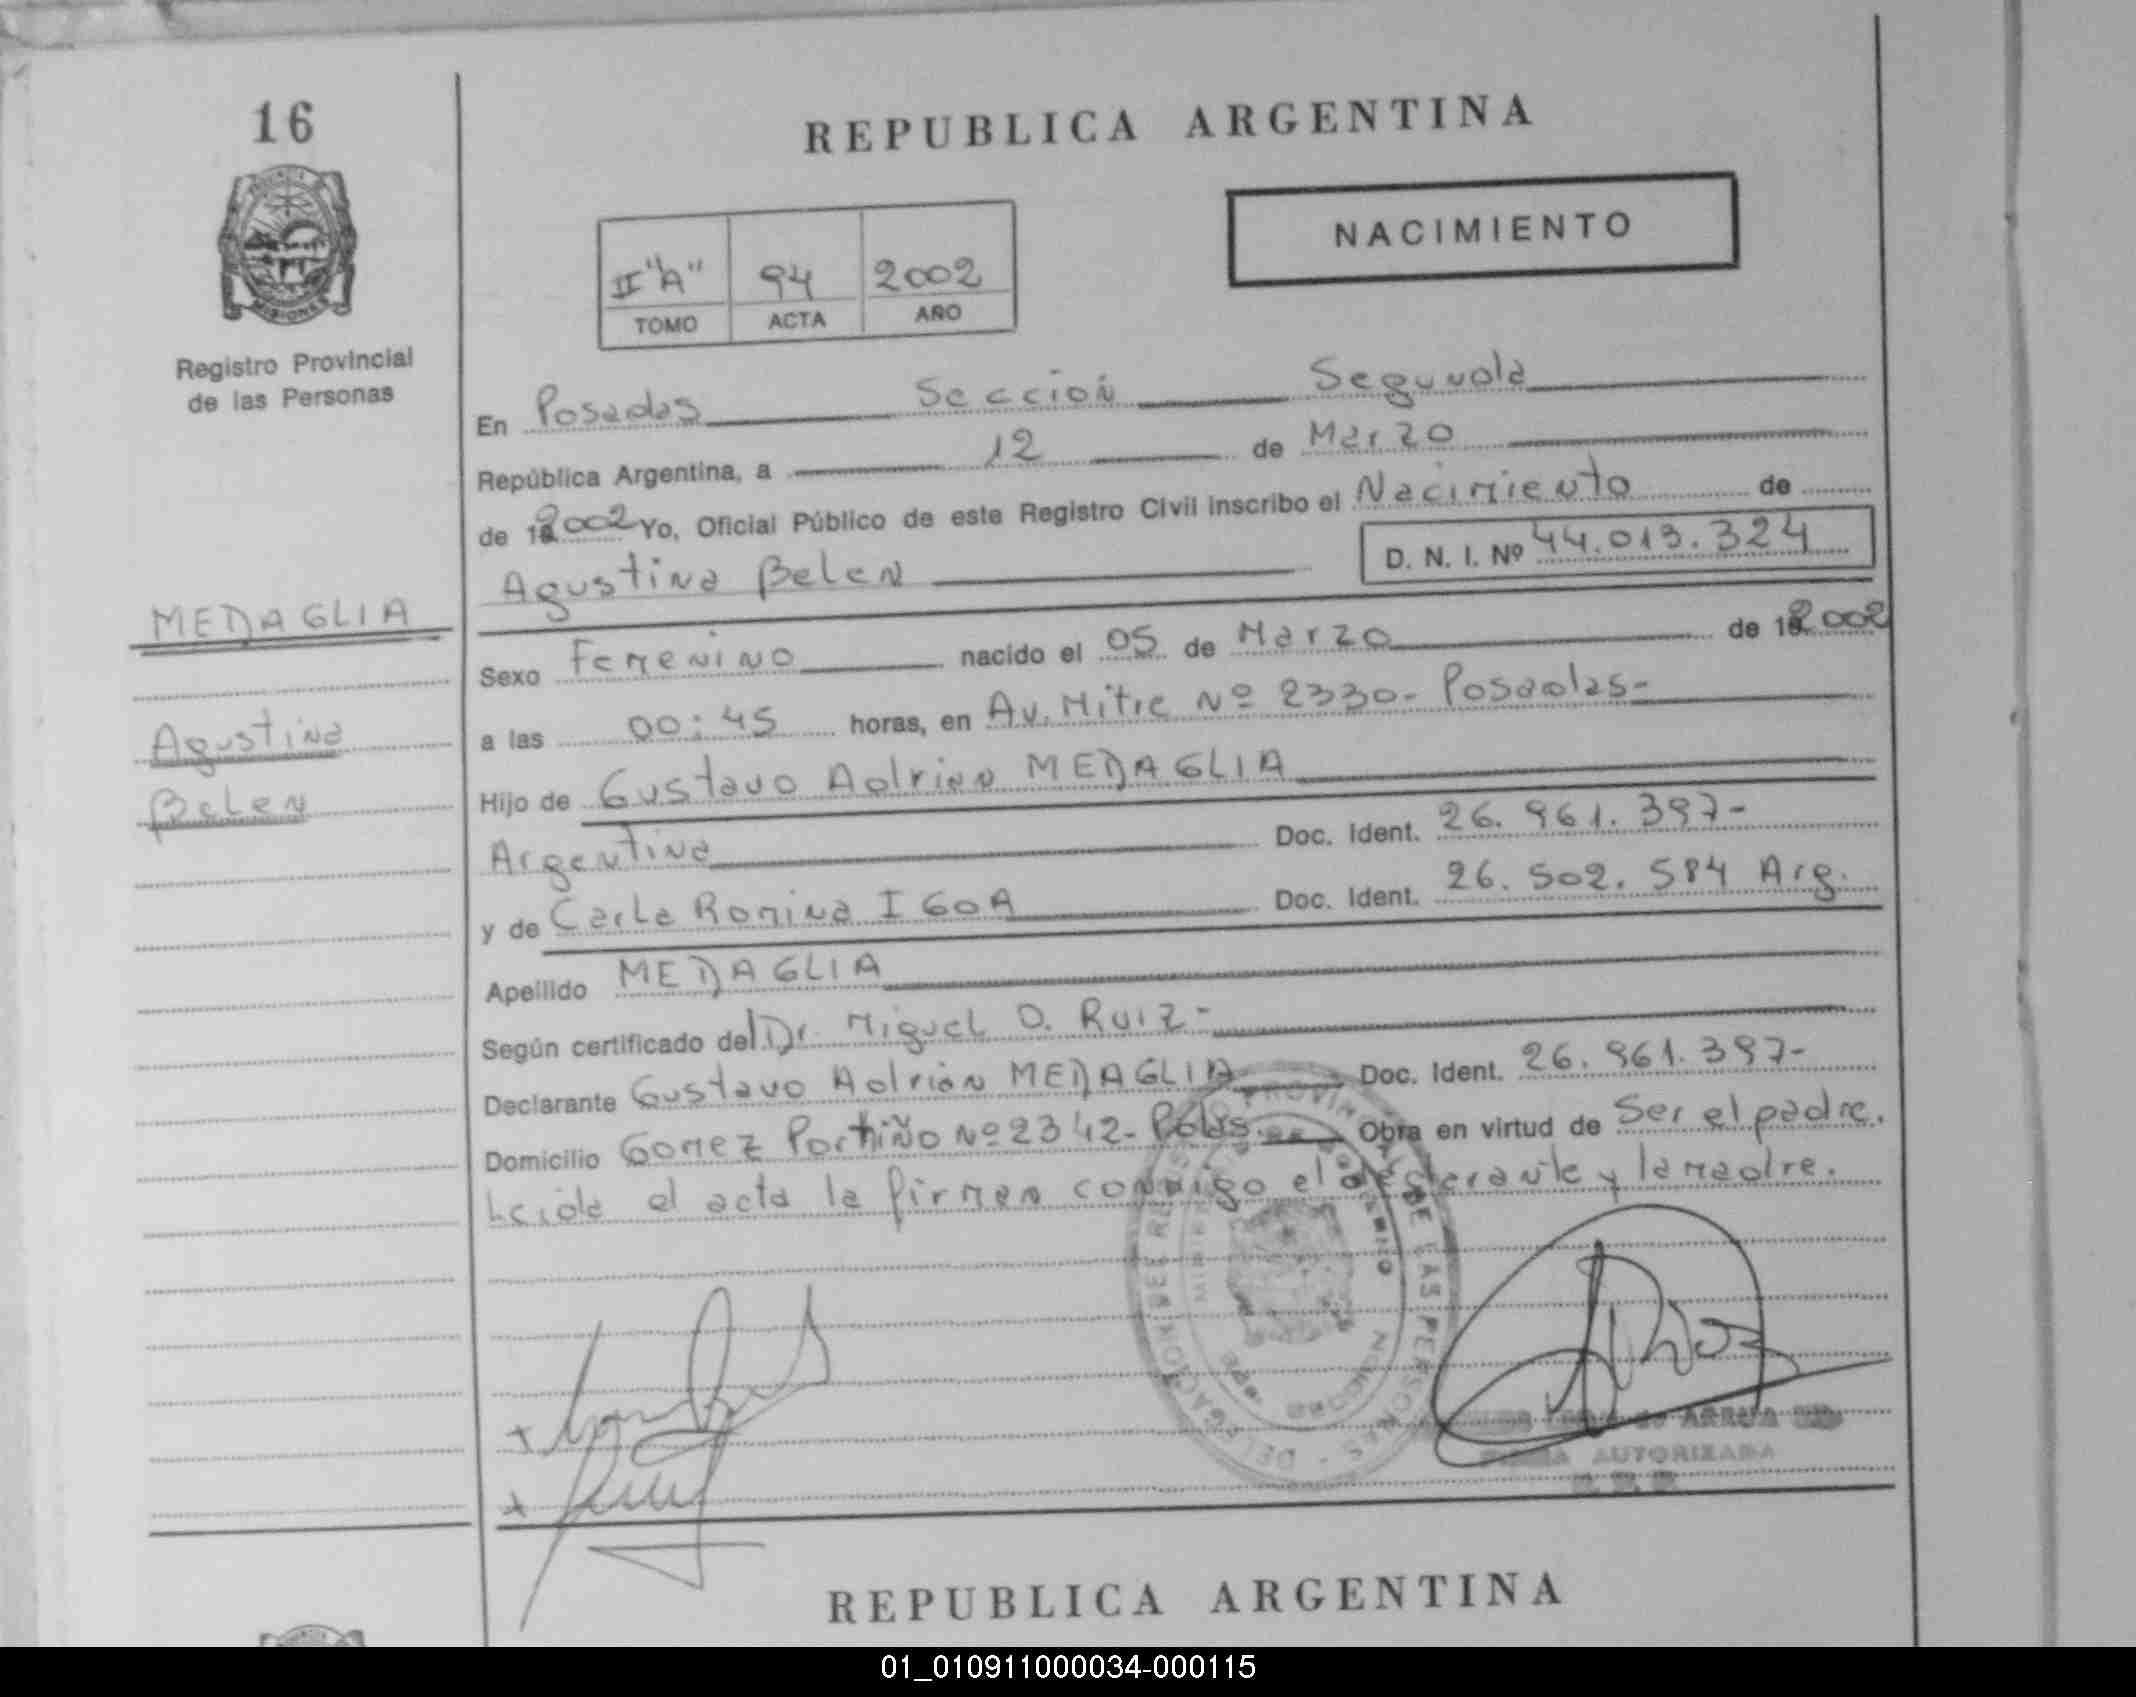 16
REPUBLICA ARGENTINA
NACIMIENTO
II "A" 94 2002
TOMO ACTA AÑO
Registro Provincial
de las Personas
En Posadas Sección Segunda
República Argentina, a 12 de Marzo
de 2002 Yo, Oficial Público de este Registro Civil inscribo el Nacimiento de
Agustina Belen D. N. I. Nº 44.013.324
MEDAGLIA
Agustina
Belen
Sexo Femenino nacido el 05 de Marzo de 2002
a las 00:45 horas, en Av. Mitre Nº 2330- Posadas-
Hijo de Gustavo Adrian MEDAGLIA
Argentina Doc. Ident. 26.961.397-
y de Carla Romina IGOA Doc. Ident. 26.502.584 Arg.
Apellido MEDAGLIA
Según certificado del Dr. Miguel O. Ruiz-
Declarante Gustavo Adrián MEDAGLIA Doc. Ident. 26.961.397-
Domicilio Gomez Portiño Nº 2342- Pdas. Obra en virtud de Ser el padre.
Leida el acta la firman conmigo el declarante y la madre.
AUTORIZADA
REPUBLICA ARGENTINA
01_010911000034-000115